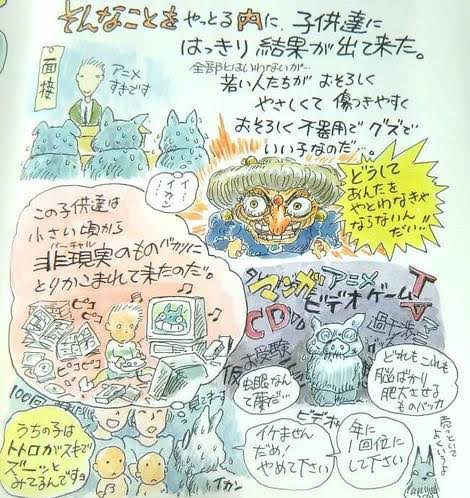 そんなことをやっとる内に、子供達に
はっきり結果が出て来た。
全部とはいわないが…
若い人たちが おそろしく
やさしくて 傷つきやすく
おそろしく 不器用で グズで
いい子なのだ…
面接
アニメ
すきです
イカン
どうして
あんたを
やとわなきゃ
ならないん
だい!!
この子供達は
小さい頃から
バーチャル
非現実のものバカリに
とりかこまれて来たのだ。
ピコ
ピコ
ピコピコ
マンガ アニメ TV
ビデオ ゲーム
CD
お受験
過干渉
仮
虫眼なん
て蘭だ…
どれもこれも
脳ばかり
肥大させる
ものバッカ
100回
見てます
うちの子は
トトロがスキで
ズーッと
みてるんですョ
イカン
ビデオ
イケません
だめ!
やめて下さい
年に
1回位に
して下さい
売っといて
よくいうよ